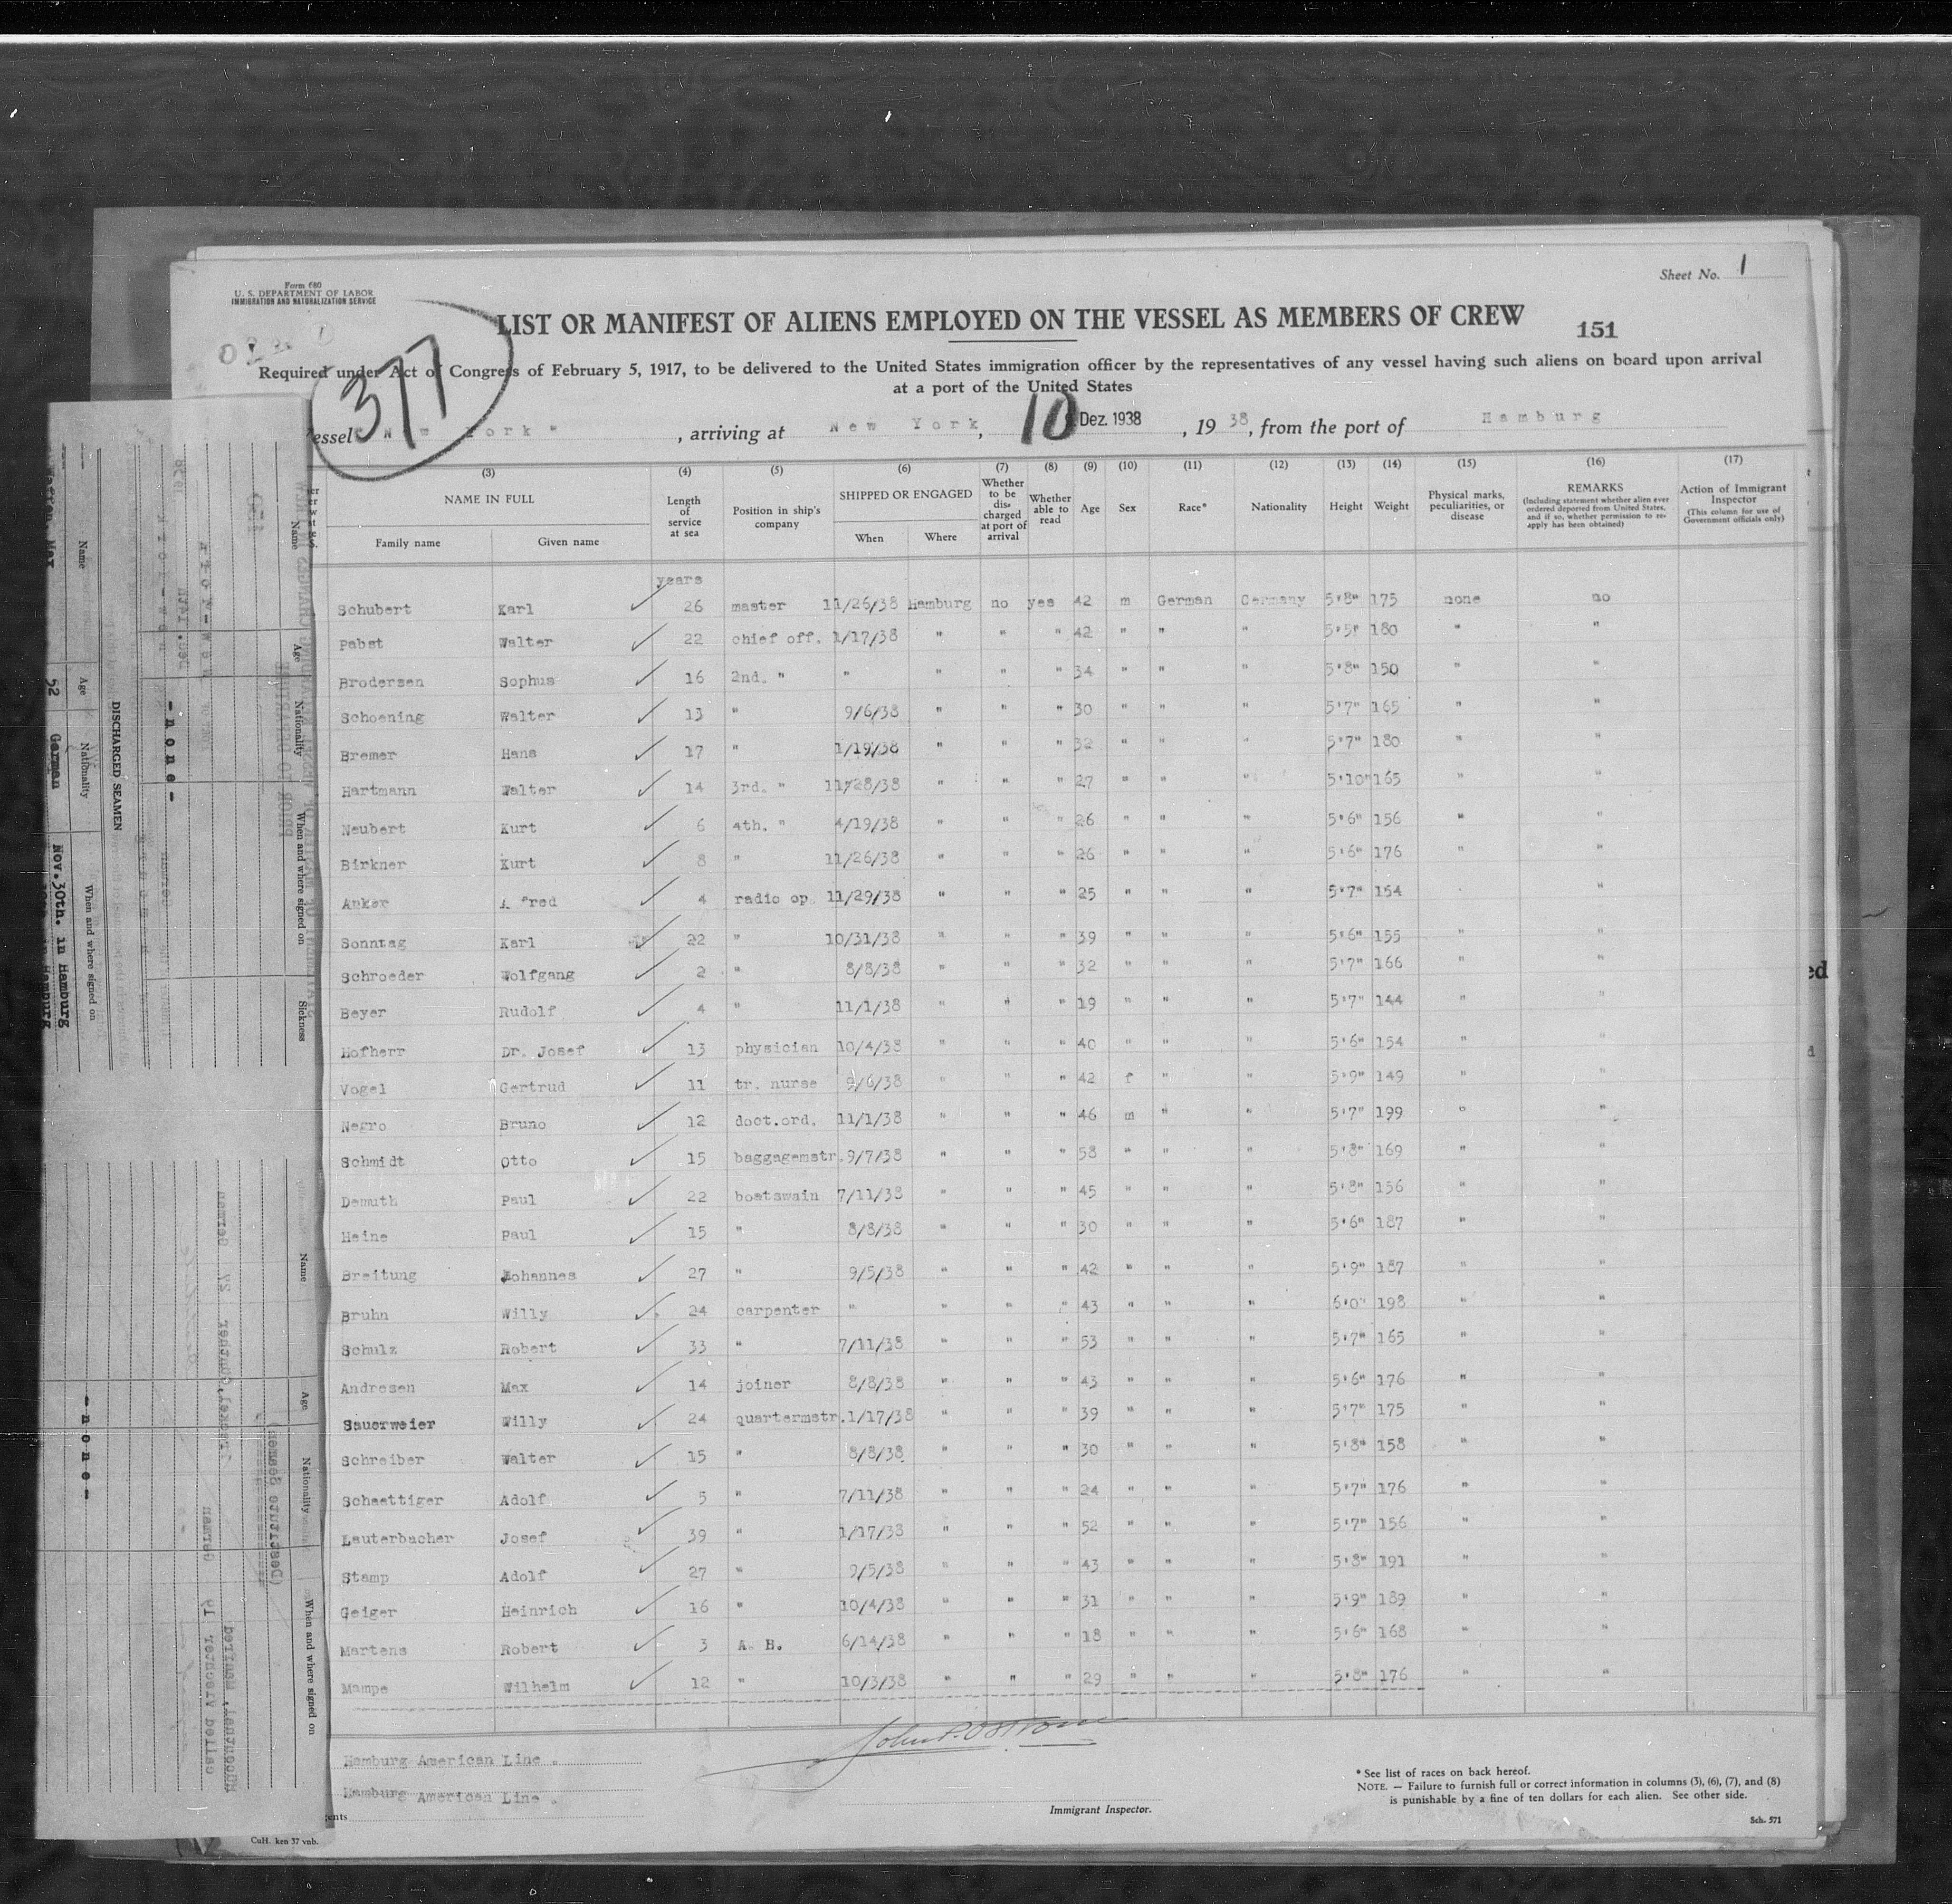 Form 680
U. S. DEPARTMENT OF LABOR
IMMIGRATION AND NATURALIZATION SERVICE
Sheet No. 1
377
LIST OR MANIFEST OF ALIENS EMPLOYED ON THE VESSEL AS MEMBERS OF CREW
151
Required under Act of Congress of February 5, 1917, to be delivered to the United States immigration officer by the representatives of any vessel having such aliens on board upon arrival
at a port of the United States
essel New York " , arriving at New York, 10 Dez. 1938 , 19 38, from the port of Hamburg
(3) (4) (5) (6) (7) (8) (9) (10) (11) (12) (13) (14) (15) (16) (17)
NAME IN FULL Length of service at sea Position in ship's company SHIPPED OR ENGAGED Whether to be discharged at port of arrival Whether able to read Age Sex Race* Nationality Height Weight Physical marks, peculiarities, or disease REMARKS (Including statement whether alien ever ordered deported from United States, and if so, whether permission to re-apply has been obtained) Action of Immigrant Inspector (This column for use of Government officials only)
Family name Given name When Where
years
Schubert Karl 26 master 11/26/38 Hamburg no yes 42 m German Germany 5'8" 175 none no
Pabst Walter 22 chief off. 1/17/38 " " " 42 " " " 5'5" 180 " "
Brodersen Sophus 16 2nd. " " " " " 34 " " " 5'8" 150 " "
Schoening Walter 13 " 9/6/38 " " " 30 " " " 5'7" 165 " "
Bremer Hans 17 " 1/19/38 " " " 32 " " " 5'7" 180 " "
Hartmann Walter 14 3rd. " 11/28/38 " " " 27 " " " 5'10" 165 " "
Neubert Kurt 6 4th. " 4/19/38 " " " 26 " " " 5'6" 156 " "
Birkner Kurt 8 " 11/26/38 " " " 26 " " " 5'6" 176 " "
Anker A fred 4 radio op. 11/29/38 " " " 25 " " " 5'7" 154 "
Sonntag Karl 22 " 10/31/38 " " " 39 " " " 5'6" 155 " "
Schroeder Wolfgang 2 " 8/8/38 " " " 32 " " " 5'7" 166 " "
Beyer Rudolf 4 " 11/1/38 " " " 19 " " " 5'7" 144 " "
Hofherr Dr. Josef 13 physician 10/4/38 " " " 40 " " " 5'6" 154 " "
Vogel Gertrud 11 tr. nurse 9/6/38 " " " 42 f " " 5'9" 149 " "
Negro Bruno 12 doct.ord. 11/1/38 " " " 46 m " " 5'7" 199 " "
Schmidt Otto 15 baggagemstr. 9/7/38 " " " 58 " " " 5'8" 169 " "
Demuth Paul 22 boatswain 7/11/38 " " " 45 " " " 5'8" 156 " "
Heine Paul 15 " 8/8/38 " " " 30 " " " 5'6" 187 " "
Breitung Johannes 27 " 9/5/38 " " " 42 " " " 5'9" 187 " "
Bruhn Willy 24 carpenter " " " " 43 " " " 6'0" 198 " "
Schulz Robert 33 " 7/11/38 " " " 53 " " " 5'7" 165 " "
Andresen Max 14 joiner 8/8/38 " " " 43 " " " 5'6" 176 " "
Sauerweier Willy 24 quartermstr. 1/17/38 " " " 39 " " " 5'7" 175 " "
Schreiber Walter 15 " 8/8/38 " " " 30 " " " 5'8" 158 " "
Schaettiger Adolf 5 " 7/11/38 " " " 24 " " " 5'7" 176 " "
Lauterbacher Josef 39 " 1/17/38 " " " 52 " " " 5'7" 156 " "
Stamp Adolf 27 " 9/5/38 " " " 43 " " " 5'8" 191 " "
Geiger Heinrich 16 " 10/4/38 " " " 31 " " " 5'9" 189 " "
Martens Robert 3 A. B. 6/14/38 " " " 18 " " " 5'6" 168 " "
Mampe Wilhelm 12 " 10/3/38 " " " 29 " " " 5'8" 176 " "
Hamburg American Line .
Hamburg American Line .
ents
Immigrant Inspector.
* See list of races on back hereof.
NOTE. — Failure to furnish full or correct information in columns (3), (6), (7), and (8)
is punishable by a fine of ten dollars for each alien. See other side.
Sch. 571
CuH. ken 37 vnb.
Name Age Nationality When and where signed on Sickness
DISCHARGED SEAMEN
Name Age Nationality When and where signed on
52 German Nov.30th. in Hamburg
- none -
Name Age Nationality When and where signed on
(Destitute Seamen)
- none -